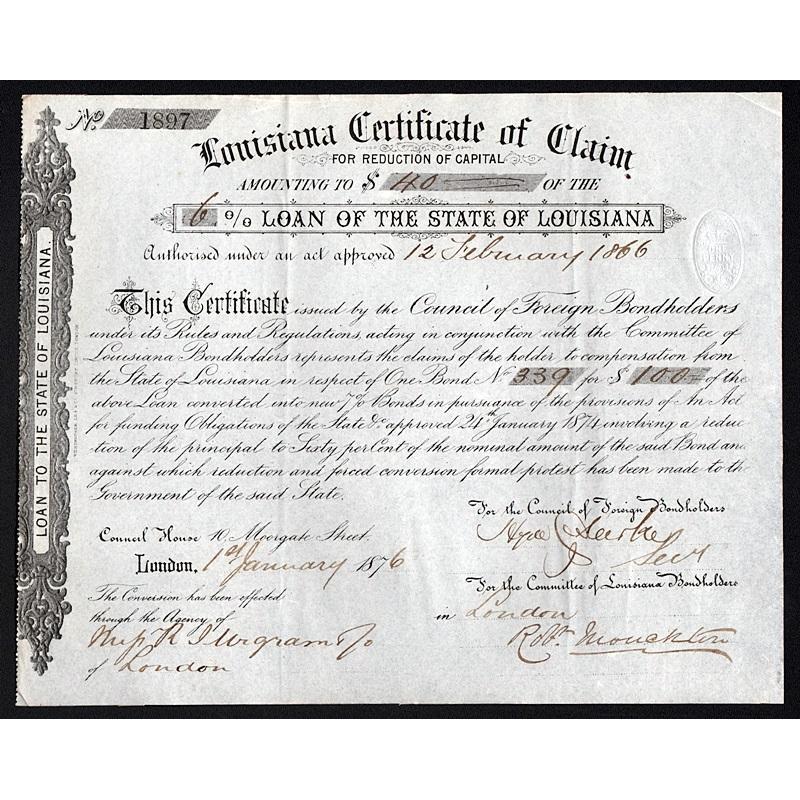 No. 1897
Louisiana Certificate of Claim
FOR REDUCTION OF CAPITAL
AMOUNTING TO $ 40 OF THE
6 % LOAN OF THE STATE OF LOUISIANA
Authorised under an act approved 12 February 1866
This Certificate issued by the Council of Foreign Bondholders
under its Rules and Regulations, acting in conjunction with the Committee of
Louisiana Bondholders represents the claims of the holder to compensation from
the State of Louisiana in respect of One Bond No 339 for $ 100 = of the
above Loan converted into new 7% Bonds in pursuance of the provisions of An Act
for funding Obligations of the State &c. approved 24th January 1874 involving a reduc
tion of the principal to Sixty per Cent of the nominal amount of the said Bond and
against which reduction and forced conversion formal protest has been made to the
Government of the said State.
For the Council of Foreign Bondholders
Hyde Clarke
Secy
Council House 10, Moorgate Street.
London, 1st January 1876
For the Committee of Louisiana Bondholders
in London
Robt. Monckton
The Conversion has been effected
through the Agency of
of London
LOAN TO THE STATE OF LOUISIANA.